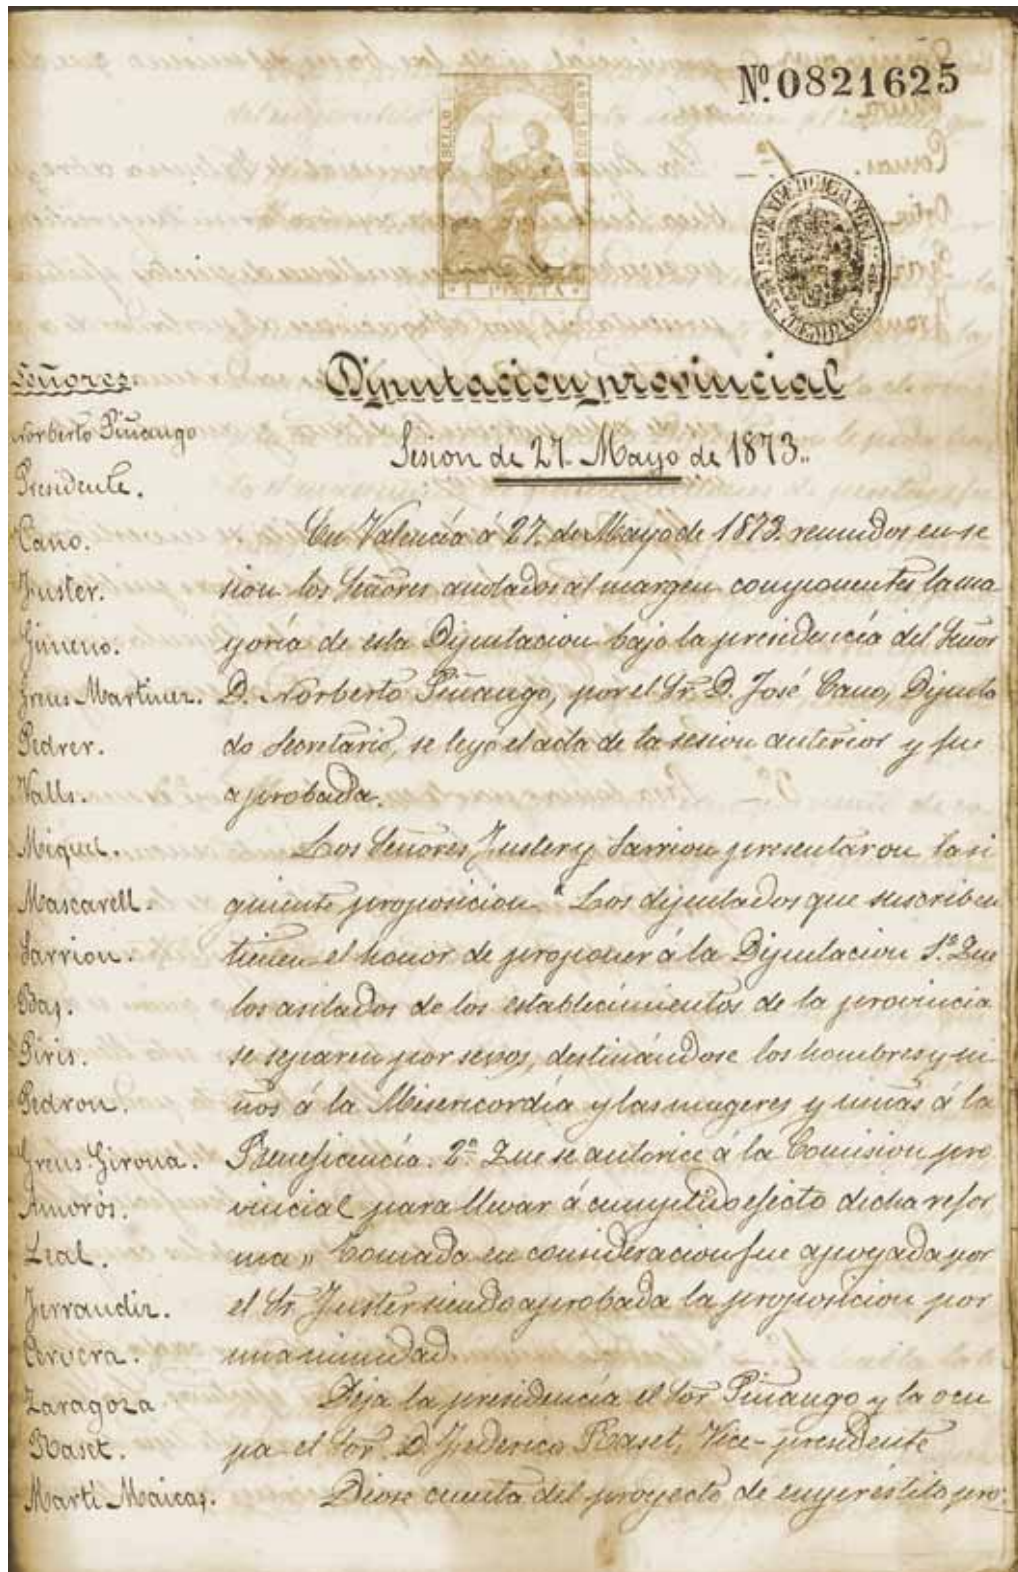 Nº 0821625
SELLO
1 PESETA
TEMPLE
Diputacion provincial
Sesion de 27. Mayo de 1873.
Señores
Norberto Piñango
Presidente.
Cano.
Fuster.
Gimeno.
Greus Martinez.
Pedrer.
Valls.
Miquel.
Mascarell.
Sarrion.
Bas.
Piris.
Pedron.
Greus Girona.
Amorós.
Leal.
Ferrandiz.
Cervera.
Zaragoza
Raset.
Martí Maicas.
En Valencia á 27. de Mayo de 1873. reunidos en se
sion los Señores anotados al margen componentes la ma
yoría de esta Diputacion bajo la presidencía del Señor
D. Norberto Piñango, por el Sr. D. José Cano, Diputa
do Secretario, se leyó el acta de la sesion anterior y fue
aprobada.
Los Señores Fuster y Sarrion presentaron la si
guiente proposicion "Los diputados que suscriben
tienen el honor de proponer á la Diputacion 1º. Que
los asilados de los establecimientos de la provincia
se separen por sexos, destinándose los hombres y ni
ños á la Misericordía y las mugeres y niñas á la
Beneficencía. 2º. Que se autorice á la Comision pro
vincial para llevar á cumplido efecto dicha refor
ma" Tomada en consideracion fue apoyada por
el Sr. Fuster siendo aprobada la proposicion por
unanimidad.
Deja la presidencía el Sor Piñango y la ocu
pa el Sor. D. Federico Raset, Vice-presidente
Diose cuenta del proyecto de empréstito pro